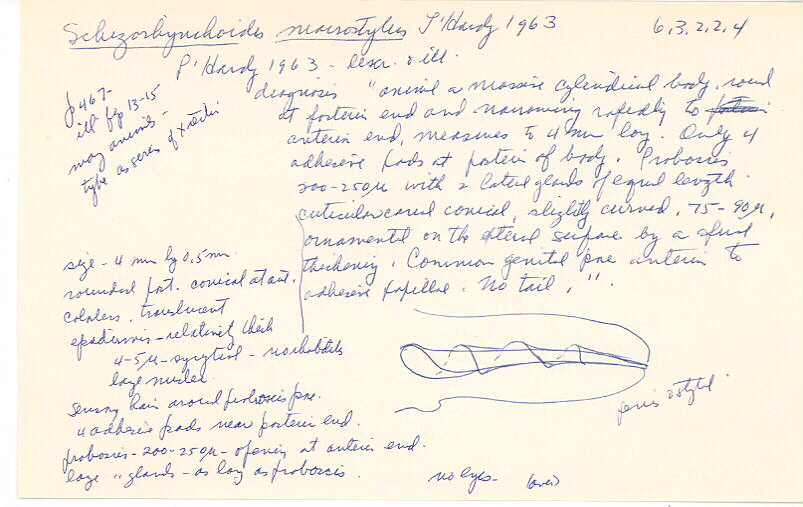 Schizorhynchoides macrostylus L'Hardy 1963
6.3.2.2.4
L'Hardy 1963 - descr. & ill.
p 467-
ill fig 13-15
many animals -
type as series of x section
diagnosis "animal a massive cylindrical body, round
at posterior end and narrowing rapidly to
anterior end, measures to 4 mm long. Only 4
adhesive pads at posterior of body. Proboscis
200-250µ with 2 lateral glands of equal length.
cuticular conical, slightly curved, 75-90µ,
ornamented on the external surface by a spiral
thickening. Common genital pore anterior to
adhesive papillae. No tail,".
size - 4 mm by 0.5 mm
rounded post. conical at ant.
colorless, translucent
epidermis - relatively thick
4-5µ - syncytial - no rhabdites
large nuclei
sensory hairs around proboscis pore.
4 adhesive pads near posterior end.
proboscis - 200-250µ - opening at anterior end.
large " glands - as long as proboscis.
penis stylet
no eyes -
(over)